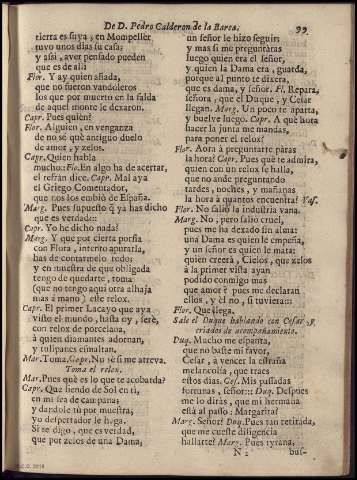 De D. Pedro Calderon de la Barca.
99
tierra es suya, en Mompeller
tuvo unos dias su casa;
y assi, aver pensado pueden
que es de allà
Flor. Y ay quien añada,
que no fueron vandoleros
los que por muerto en la falda
de aquel monte le dexaron.
Capr. Pues quien?
Flor. Alguien, en venganza
de no sè què antiguo duelo
de amor, y zelos.
Capr. Quien habla
mucho::: Flo. En algo ha de acertar,
el refràn dice. Capr. Mal aya
el Griego Comentador,
que nos los embiò de España.
Marg. Pues supuesto q̃ ya has dicho
que es verdad:::
Capr. Yo he dicho nada?
Marg. Y que por cierta porfia
con Flora, intento apurarla,
has de contarmelo todo;
y en muestra de que obligada
tengo de quedarte, toma
(que no tengo aqui otra alhaja
mas à mano) este relox.
Capr. El primer Lacayo que aya
visto el mundo, hasta oy, serè,
con relox de porcelana,
à quien diamantes adornan,
y tulipanes esmaltan.
Mar. Toma, Capr. No sè si me atreva.
Toma el relox.
Mar. Pues què es lo que te acobarda?
Capr. Que siendo de Sol en ti,
en mi sea de campana;
y dandole tù por muestra,
yo despertador le haga.
Si te digo, que es verdad,
que por zelos de una Dama,
un señor le hizo seguir;
y mas si me preguntàras
luego quien era el señor,
y quien la Dama era, guarda,
porque al punto te dixera,
que es dama, y señor. Fl. Repara,
señora, que el Duque, y Cesar
llegan. Marg. Un poco te aparta,
y buelve luego. Capr. A què hora
hacer la junta me mandas,
para poner el relox?
Flor. Aora à preguntarte paras
la hora? Capr. Pues què te admira,
quien con un relox se halla,
que no ande preguntando
tardes, noches, y mañanas
la hora à quantos encuentra? Vas.
Flor. No saliò la industria vana.
Marg. No, pero saliò cruel,
pues me ha dexado sin alma:
una Dama es quien le empeña,
y un señor es quien le mata;
quien creerà, Cielos, que zelos
à la primer vista ayan
podido conmigo mas
que amor è pues me declaran
ellos, y èl no, si tuviera:::
Flor. Que llega.
Sale el Duque hablando con Cesar, y
criados de acompañamiento.
Duq. Mucho me espanta,
que no baste mi favor,
Cesar, à vencer la estraña
melancolia, que traes
estos dias. Ces. Mis passadas
fortunas, señor::: Duq. Despues
me lo diràs, que mi hermana
està al passo: Margarita?
Marg. Señor? Duq. Pues tan retirada,
que me cueste diligencia
hallarte? Marg. Pues tyrana,
N 2
bus-